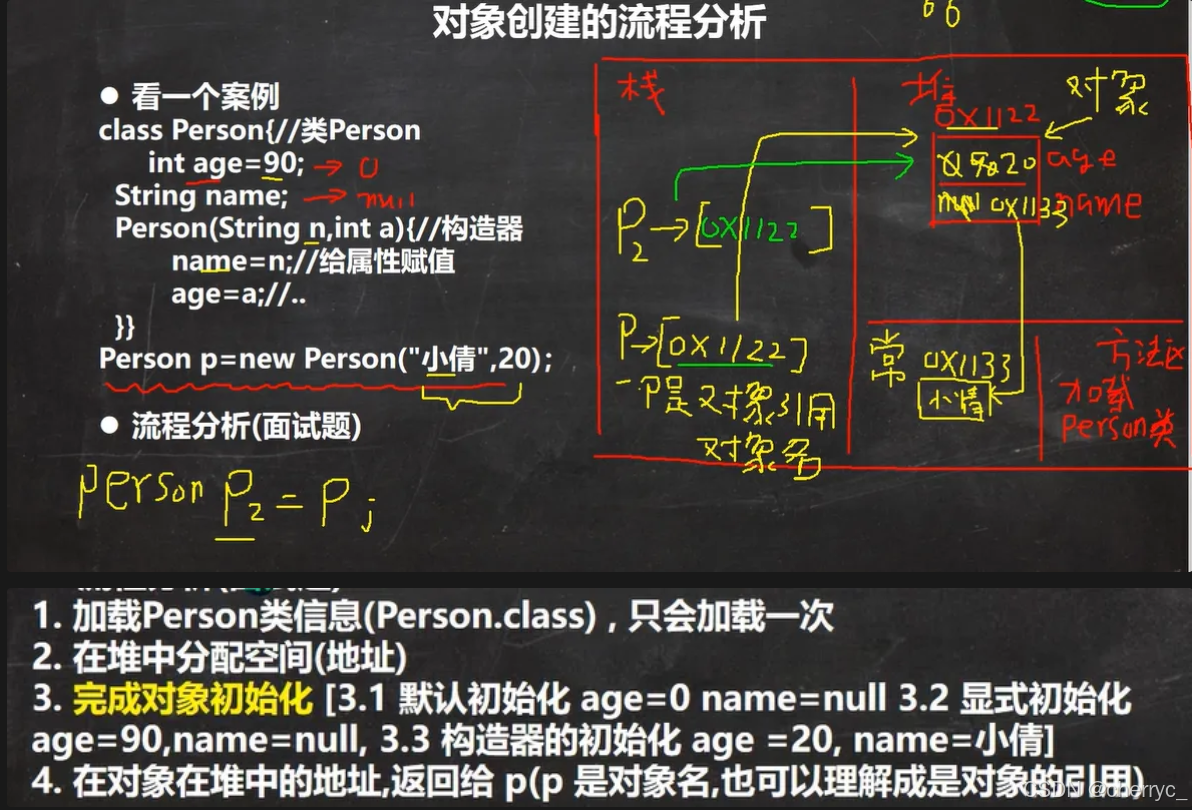 对象创建的流程分析
● 看一个案例
class Person{//类Person
int age=90; → 0
String name; → null
Person(String n,int a){//构造器
name=n;//给属性赋值
age=a;//..
}}
Person p=new Person("小倩",20);
● 流程分析(面试题)
person P2 = P;
栈
堆
对象
0X1122
90 20 age
null 0X1133 name
P2→[0X1122]
P→[0X1122]
一P是对象引用
对象名
常
0X1133
小倩
方法区
加载
Person类
1. 加载Person类信息(Person.class)，只会加载一次
2. 在堆中分配空间(地址)
3. 完成对象初始化 [3.1 默认初始化 age=0 name=null 3.2 显式初始化
age=90,name=null, 3.3 构造器的初始化 age =20, name=小倩]
4. 在对象在堆中的地址,返回给 p(p 是对象名,也可以理解成是对象的引用)
CSDN @cherryc_